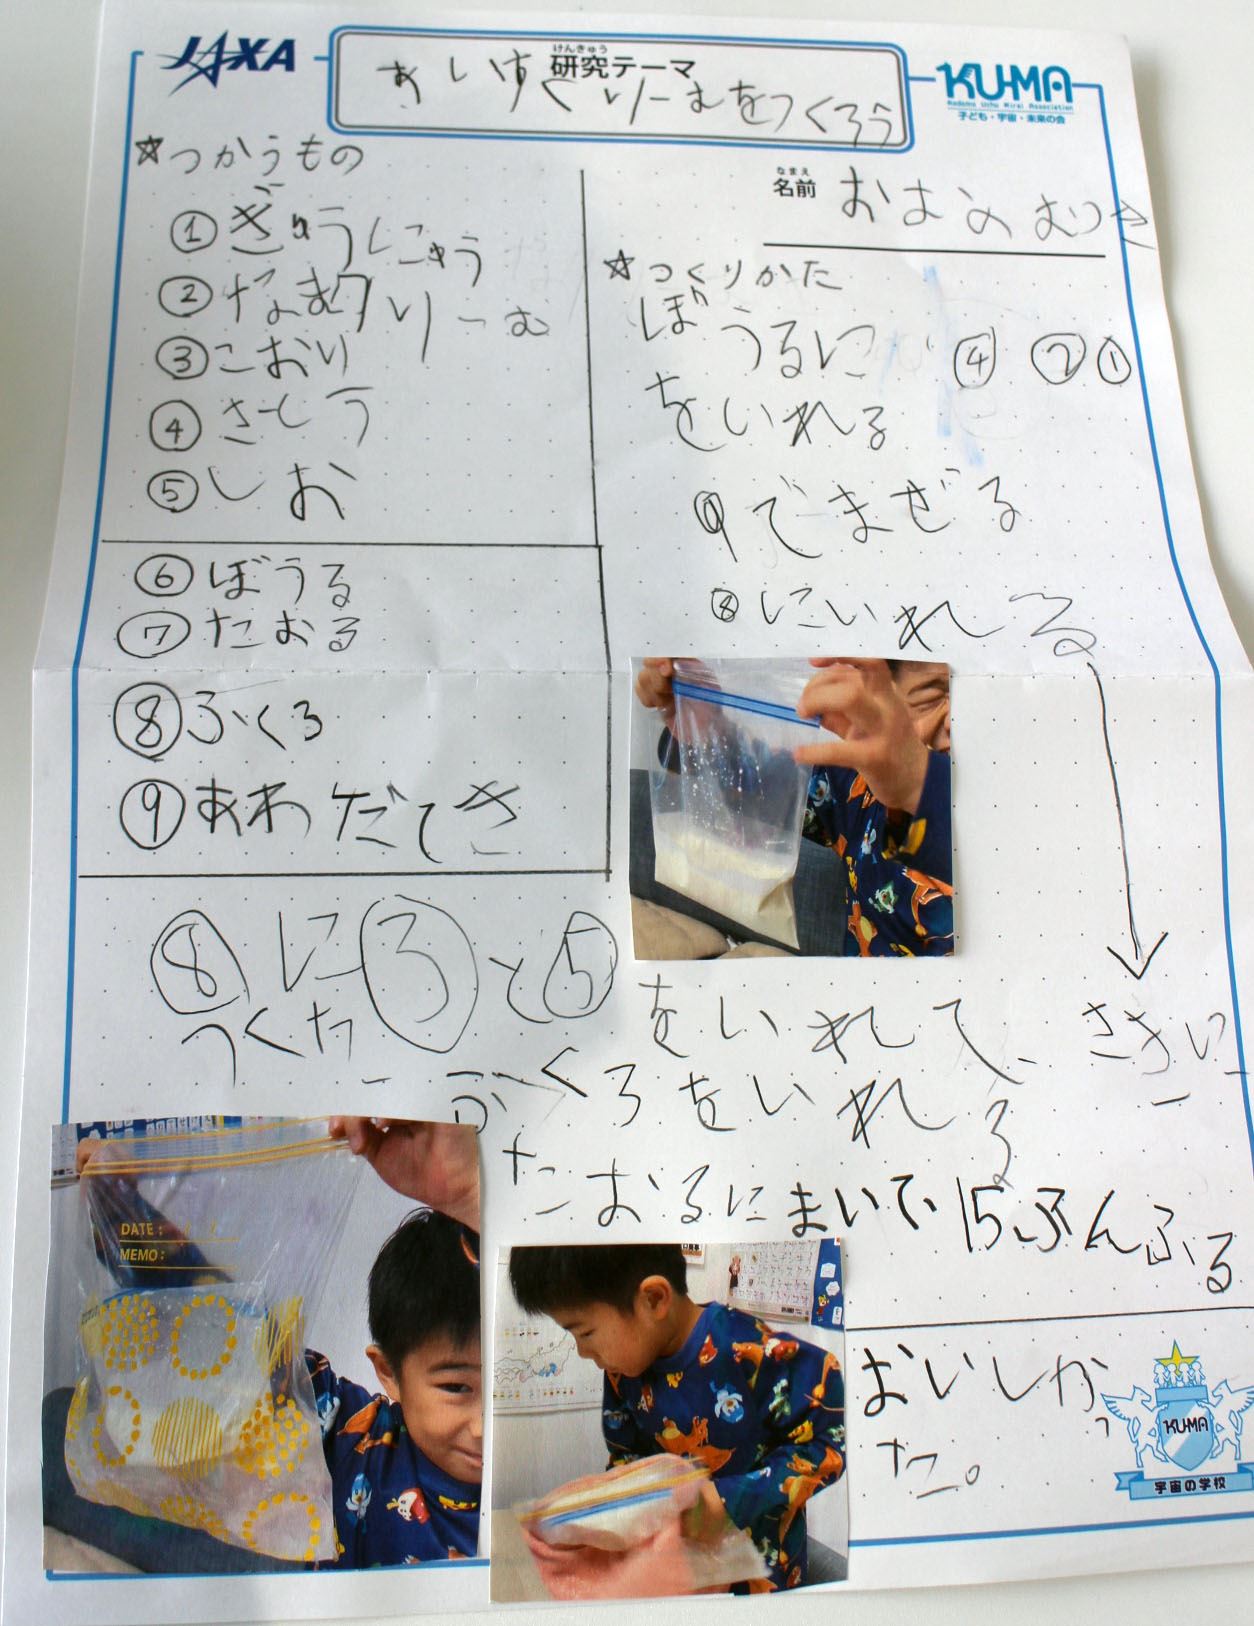 JAXA
けんきゅう
研究テーマ
あいすくりーむをつくろう
KU-MA
Kodomo Uchu Mirai Association
子ども・宇宙・未来の会
なまえ
名前 おはらの むつき
☆つかうもの
①ぎゅうにゅう
②なまクリーむ
③こおり
④さとう
⑤しお
⑥ぼうる
⑦たおる
⑧ふくろ
⑨あわだてき
☆つくりかた
ぼうるに ④ ② ①
をいれる
⑨でまぜる
⑧にいれる
⑧に③と⑤をいれて、さきに
つくたふくろをいれる
たおるにまいて15ふんふる
DATE: / /
MEMO:
おいしかっ
た。
KU-MA
宇宙の学校